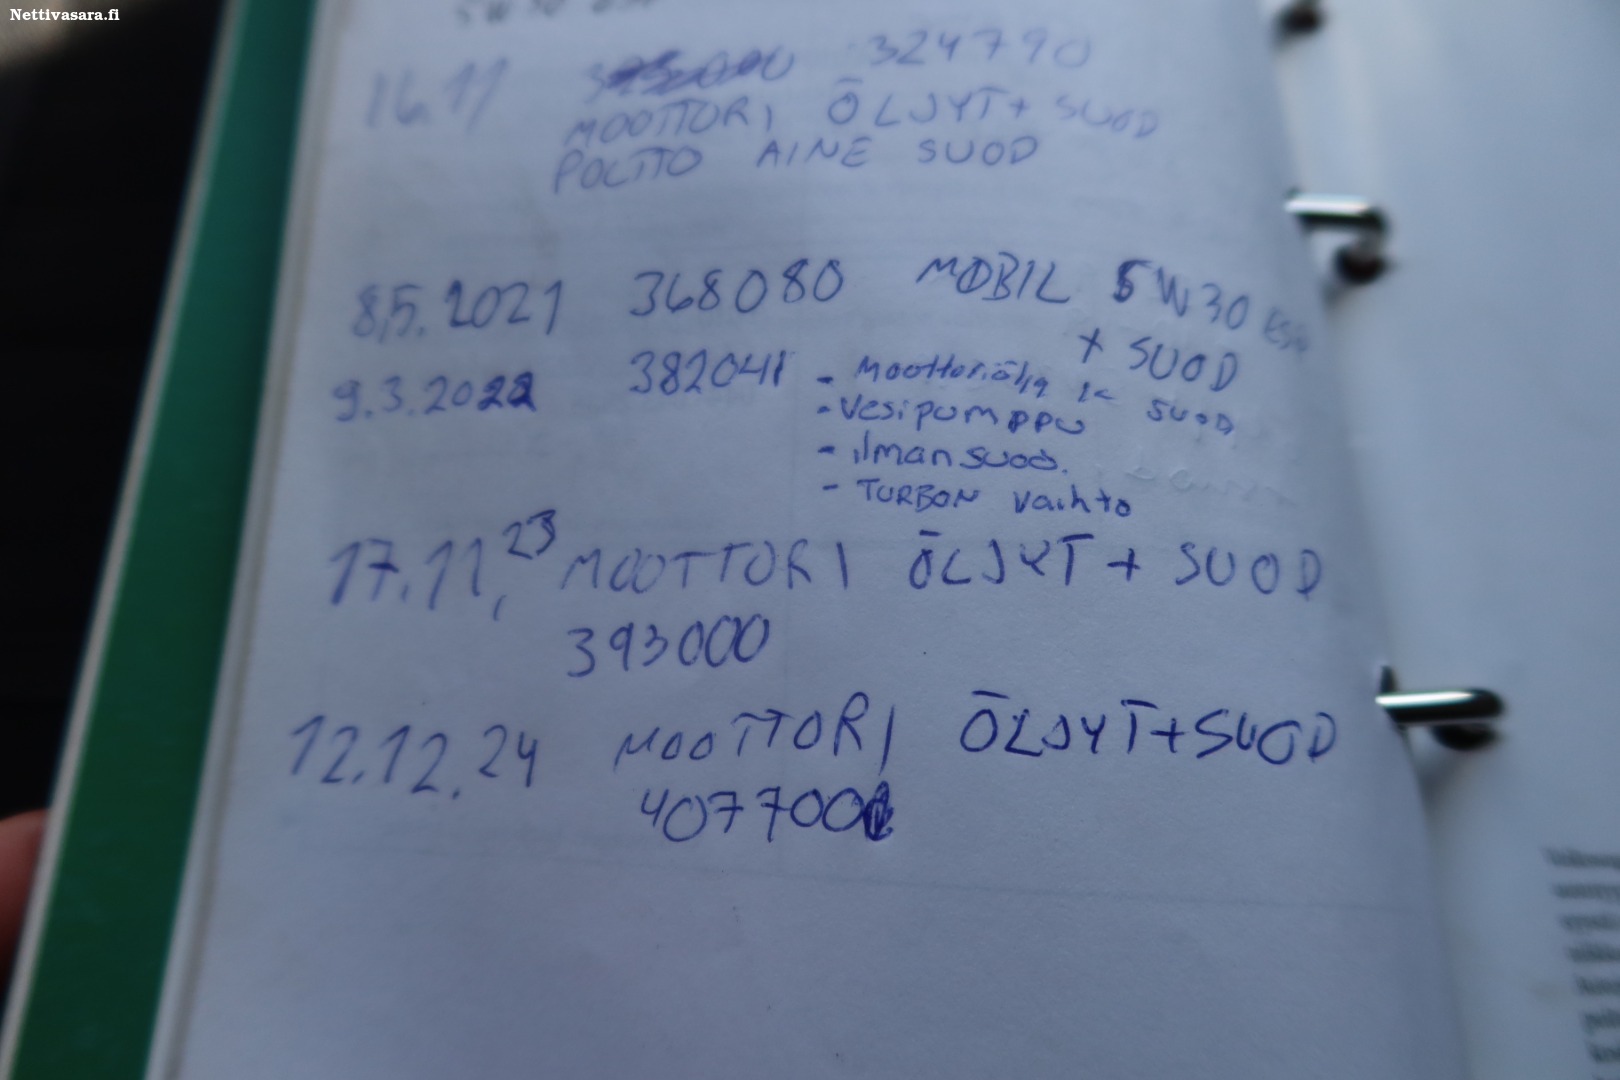 Nettivasara.fi
5W30
16.11 324790
MOOTTORI ÖLJYT + SUOD
POLTTO AINE SUOD
8.5.2021 368080 MOBIL 5W30
+ SUOD
9.3.2022 382041 - Moottoriöljy ja SUOD
- Vesipumppu
- ilman suod.
- TURBON vaihto
17.11.23 MOOTTORI ÖLJYT + SUOD
393000
12.12.24 MOOTTORI ÖLJYT + SUOD
407700